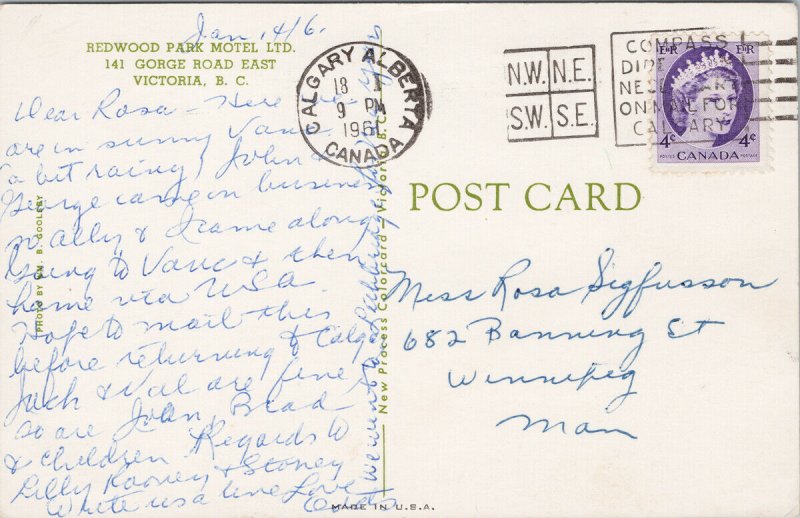 Jan 14/61
REDWOOD PARK MOTEL LTD.
141 GORGE ROAD EAST
VICTORIA, B. C.
Dear Rosa – Here we
are in sunny Vanc.
(a bit rainy) John &
George came on business
Wally & I came along
Going to Vanc & then
home via USA.
Hope to mail this
before returning to Calgary
Jack & Val are fine,
so are John, Brad
& children. Regards to
Lilly Rooney & Stoney
Write us a line Love
We went to
PHOTO BY WM. B. GOOLEBY
New Process Colorcard — Victoria, B. C.
MADE IN U.S.A.
CALGARY ALBERTA
18 I
9 PM
1961
CANADA
N.W. N.E.
S.W. S.E.
COMPASS
DIRE
NECESSARY
ON MAIL FOR
CALGARY
E II R E II R
4¢ 4¢
POSTES CANADA POSTAGE
POST CARD
Miss Rosa Sigfusson
682 Banning St
Winnipeg
Man